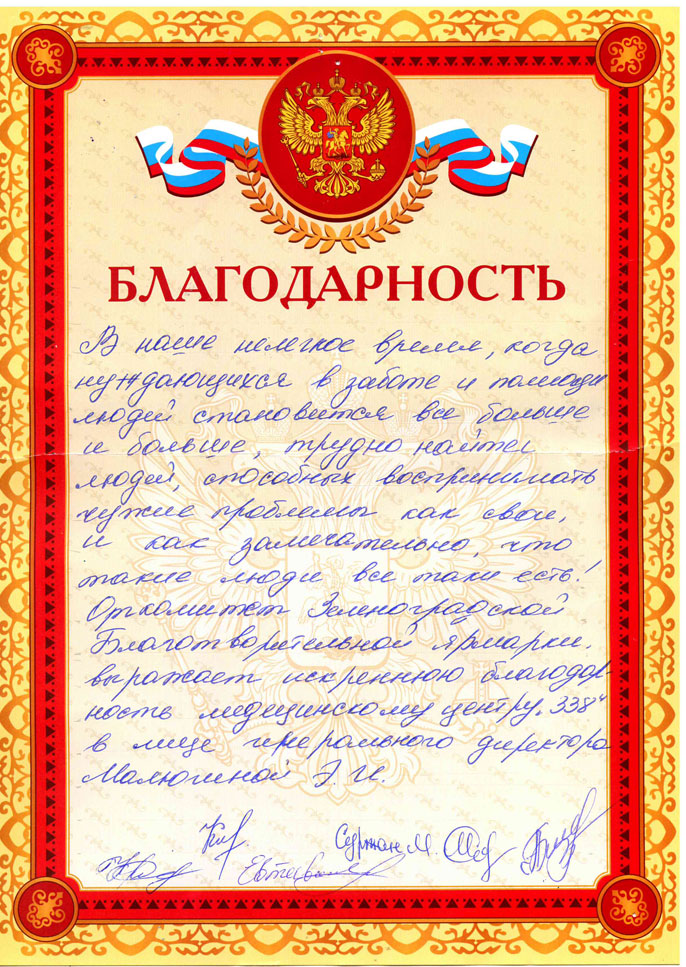 БЛАГОДАРНОСТЬ
В наше нелегкое время, когда
нуждающихся в заботе и помощи
людей становится все больше
и больше, трудно найти
людей, способных воспринимать
чужие проблемы как свои,
и как замечательно, что
такие люди все таки есть!
Оргкомитет Зеленоградской
Благотворительной Ярмарки.
выражает искреннюю благодар-
ность медицинскому центру „338“
в лице генерального директора
Малюгиной Э. И.